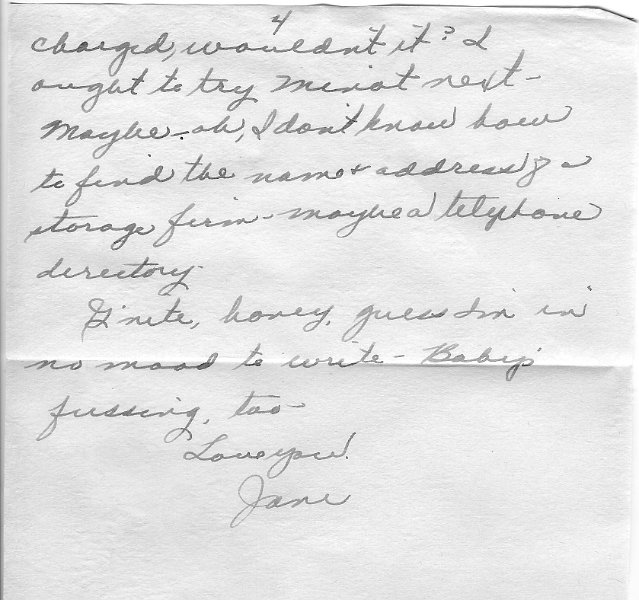 4
charged, wouldn't it? I
ought to try Minot next -
Maybe - oh, I don't know how
to find the name & address of a
storage firm - maybe a telephone
directory.
G'nite, honey, guess I'm in
no mood to write - Baby's
fussing, too
Love you.
Jane